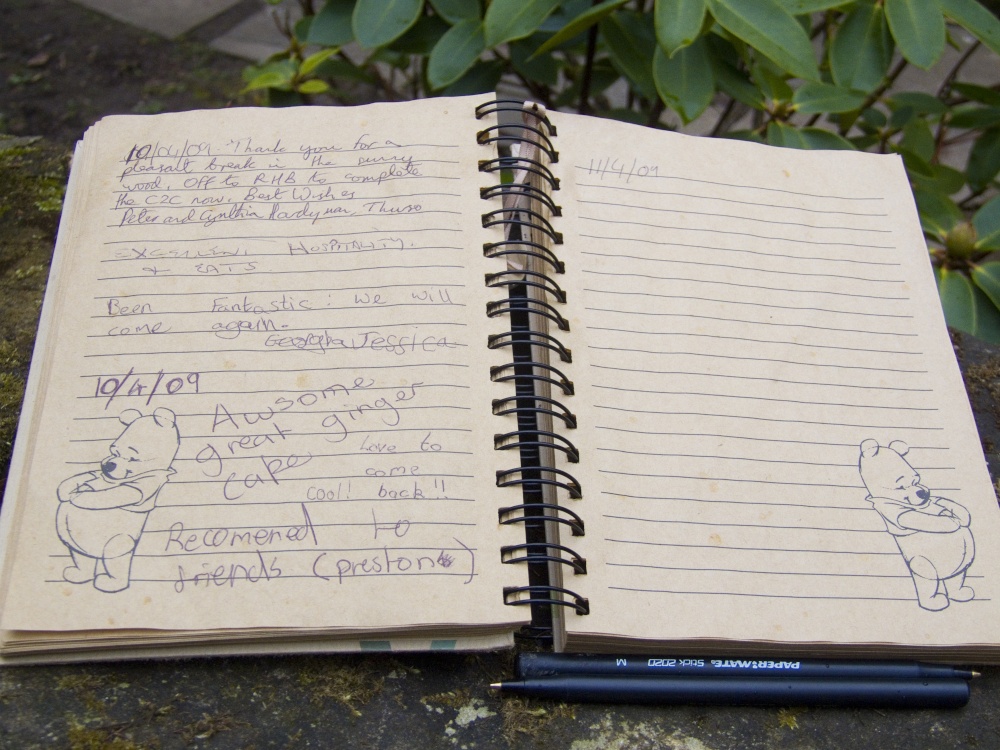 10/04/09. Thank you for a
pleasant break in the sunny
wood, Off to RHB to complete
the C2C now. Best Wishes
Peter and Cynthia Hardyman, Thurso
EXCELLENT HOSPITALITY.
& EATS
Been Fantastic! we will
come again.
Georgha Jessica
10/4/09
Awsome
great ginger
cake
Love to
come
cool! back!!
Recomened to
friends (preston)
11/4/09
PAPER MATE Stick 2020 M